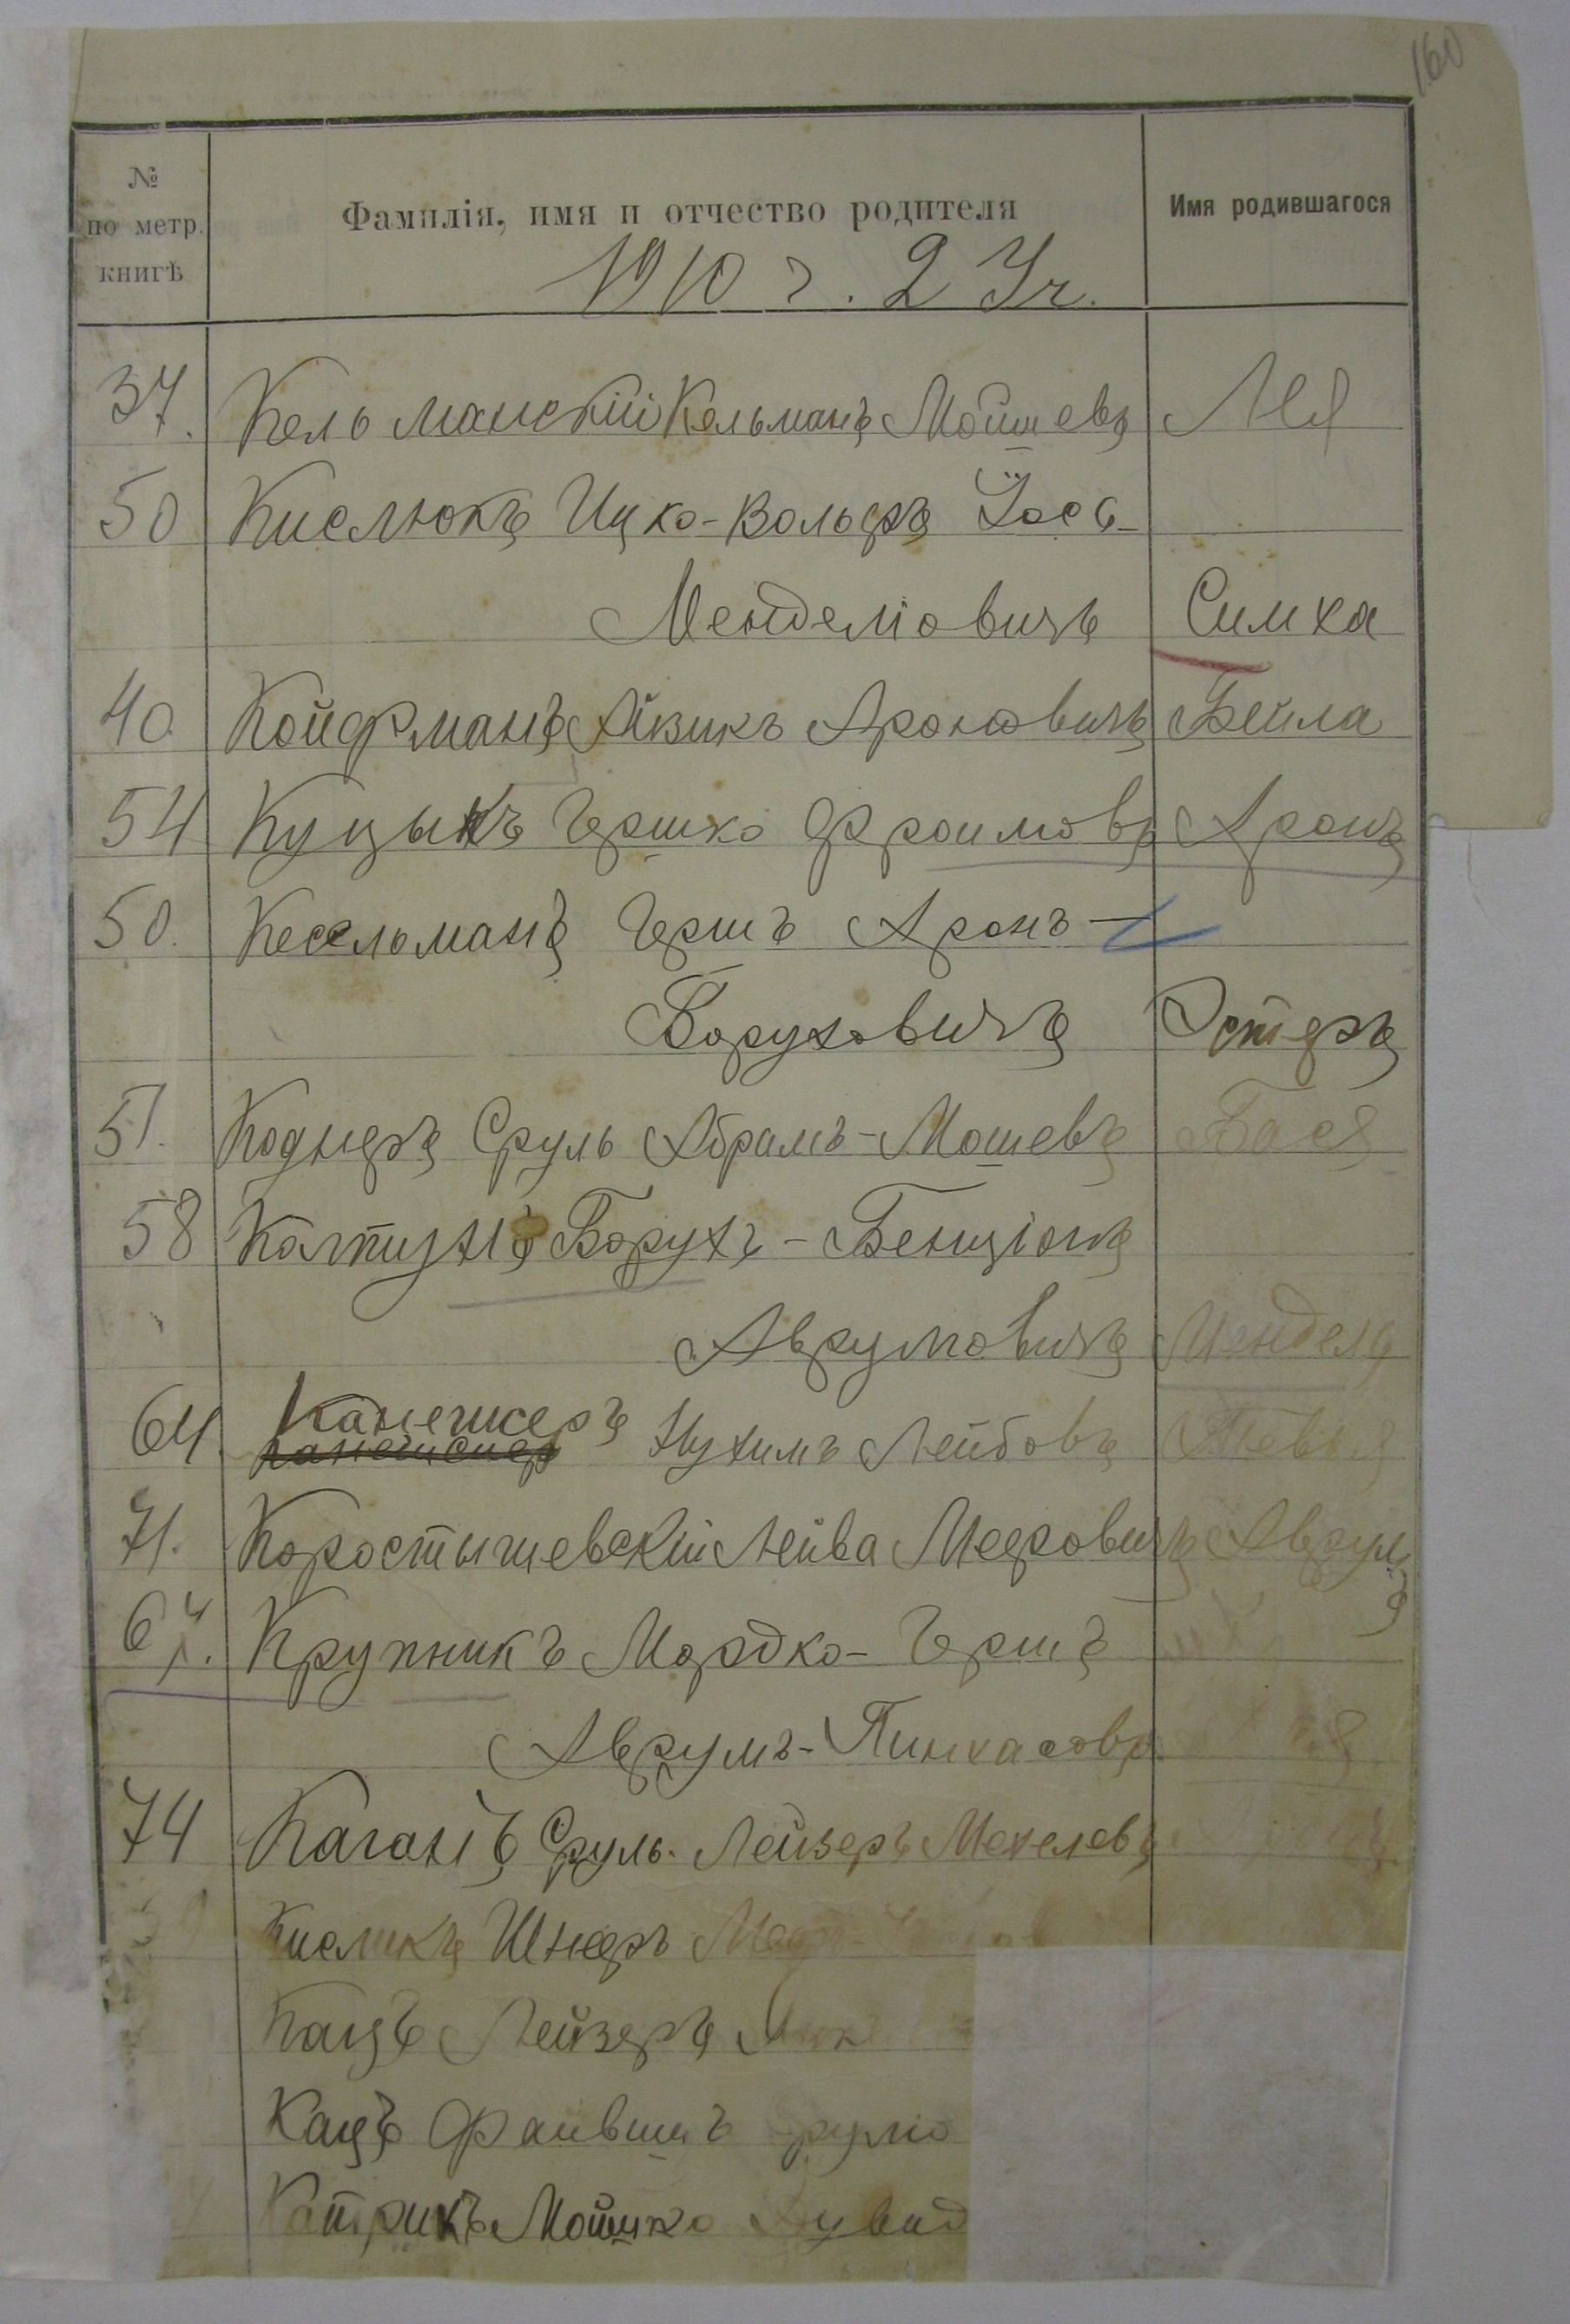 160
№ по метр. книгѣ
Фамилія, имя и отчество родителя
Имя родившагося
1910 г. 2 Уч.
37. Кельманскій Кельманъ Мойшевъ Лея
50 Кислюкъ Ицко-Вольфъ Іось-
Менделіовичъ Симха
40 Койфманъ Айзикъ Ароновичъ Бейла
54 Куцыкъ Гершко Фроимовъ Аронъ
50. Кесельманъ Гершъ Аронъ-
Боруховичъ Эстеръ
51. Коднеръ Сруль Абрамъ-Мошевъ Бася
58 Колтунъ Борухъ-Бенціонъ
Аврумовичъ Мендель
64. Канегисеръ Нухимъ Лейбовъ
71. Коростышевскій Лейва Мееровичъ Аврумъ
Крупникъ Мордко-Гершъ
Аврумъ-Пинхасовъ
74 Каганъ Сруль-Лейзеръ Мехелевъ
Кисликъ Шнеръ
Кацъ Лейзеръ
Кацъ Файвишъ
Катрикъ Мошко